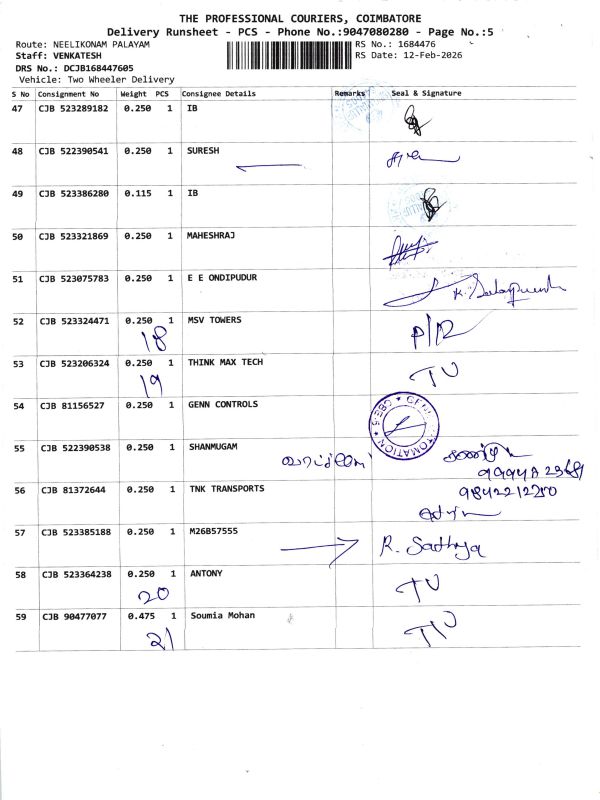 THE PROFESSIONAL COURIERS, COIMBATORE
Delivery Runsheet - PCS - Phone No.:9047080280 - Page No.:5
Route: NEELIKONAM PALAYAM RS No.: 1684476
Staff: VENKATESH RS Date: 12-Feb-2026
DRS No.: DCJB168447605
Vehicle: Two Wheeler Delivery
S No Consignment No Weight PCS Consignee Details Remarks Seal & Signature
47 CJB 523289182 0.250 1 IB
48 CJB 522390541 0.250 1 SURESH
49 CJB 523386280 0.115 1 IB
50 CJB 523321869 0.250 1 MAHESHRAJ
51 CJB 523075783 0.250 1 E E ONDIPUDUR
52 CJB 523324471 0.250 1 MSV TOWERS P/R
18
53 CJB 523206324 0.250 1 THINK MAX TECH TU
19
54 CJB 81156527 0.250 1 GENN CONTROLS
55 CJB 522390538 0.250 1 SHANMUGAM
56 CJB 81372644 0.250 1 TNK TRANSPORTS 9842212250
57 CJB 523385188 0.250 1 M26B57555 R. Sathya
58 CJB 523364238 0.250 1 ANTONY TU
20
59 CJB 90477077 0.475 1 Soumia Mohan TU
21